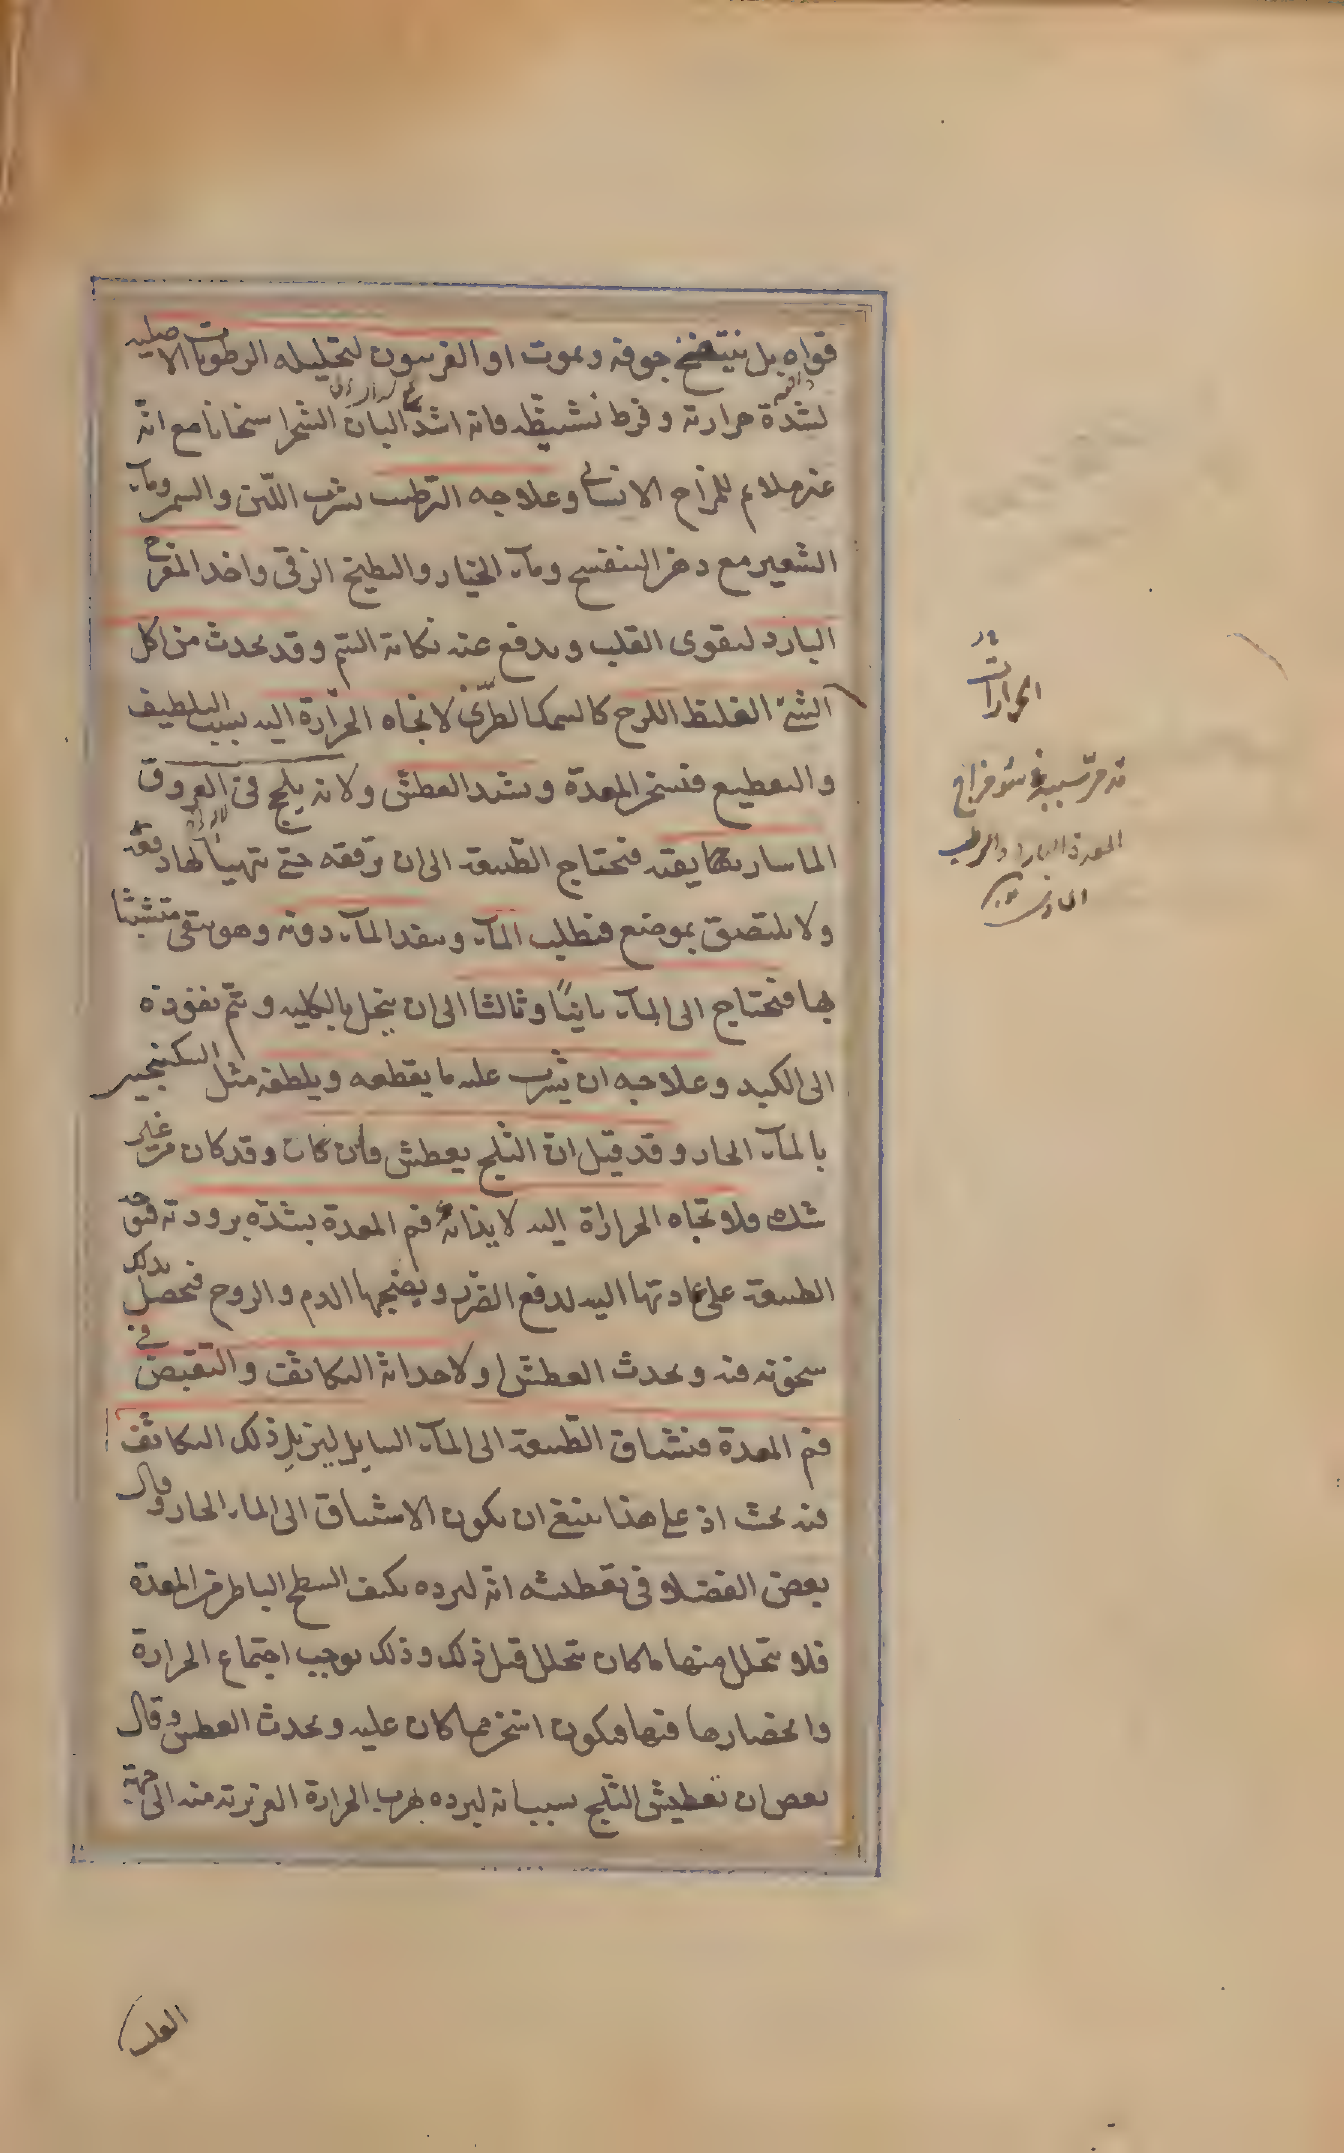 قواه بل ينتفخ جوفه ويموت او الفرسون لتحليله الرطوبات الاصليه
لشدة حرارته وفرط تشيطه فانه اشد البان الشجر اسخانا مع انه
غير ملايم للمزاج الانساني وعلاجه الترطيب بشرب اللبن والسمن وماء
الشعير مع دهن البنفسج وماء الخيار والبطيخ الزقي واخذ المفرح
البارد ليقوى القلب ويدفع عنه نكاية السم وقد يحدث من اكل
الشئ الغليظ اللزج كالسمك الطري لاتجاه الحرارة اليه بسبب التلطيف
والتقطيع فتسخن المعدة ويشتد العطش ولانه يلحج في العروق
الماساريقا يقيه فتحتاج الطبيعة الى ان ترققه حتى تتهيأ لها دفعه
ولا يلتصق بموضع فتطلب الماء وينفذ الماء دونه وهو يبقى متشبثا
بها فتحتاج الى الماء ثانيا وثالثا الى ان ينحل بالكليه ويتم نفوذه
الى الكبد وعلاجه ان يشرب عليه ما يقطعه ويلطفه مثل السكنجبين
بالماء الحار وقد قيل ان الثلج يعطش فان كان وقد كان من غير
شك فلاتجاه الحرارة اليه لايذائه فم المعدة بشدة برودته فتتوجه
الطبيعة على عادتها اليه لدفع الضرر ويصحبها الدم والروح فتحصل بذلك
سخونه فيه ويحدث العطش او لاحداثه التكاثف والتقبض في
فم المعدة فتشتاق الطبيعة الى الماء السايل ليزيل ذلك التكاثف
فيه بحث اذ على هذا ينبغي ان يكون الاشتياق الى الماء الحار وقال
بعض الفضلاء في تعطيشه انه لبرده يكثف السطح الباطن من المعدة
فلا يتحلل منها ما كان يتحلل قبل ذلك وذلك يوجب اجتماع الحرارة
وانحصارها فيها فيكون اسخن مما كان عليه ويحدث العطش وقال
بعض ان تعطيش الثلج بسبب انه لبرده يهرب الحرارة الغريزية منه الى جهة
القلب
الحرارات
المعدة البارد الرطب